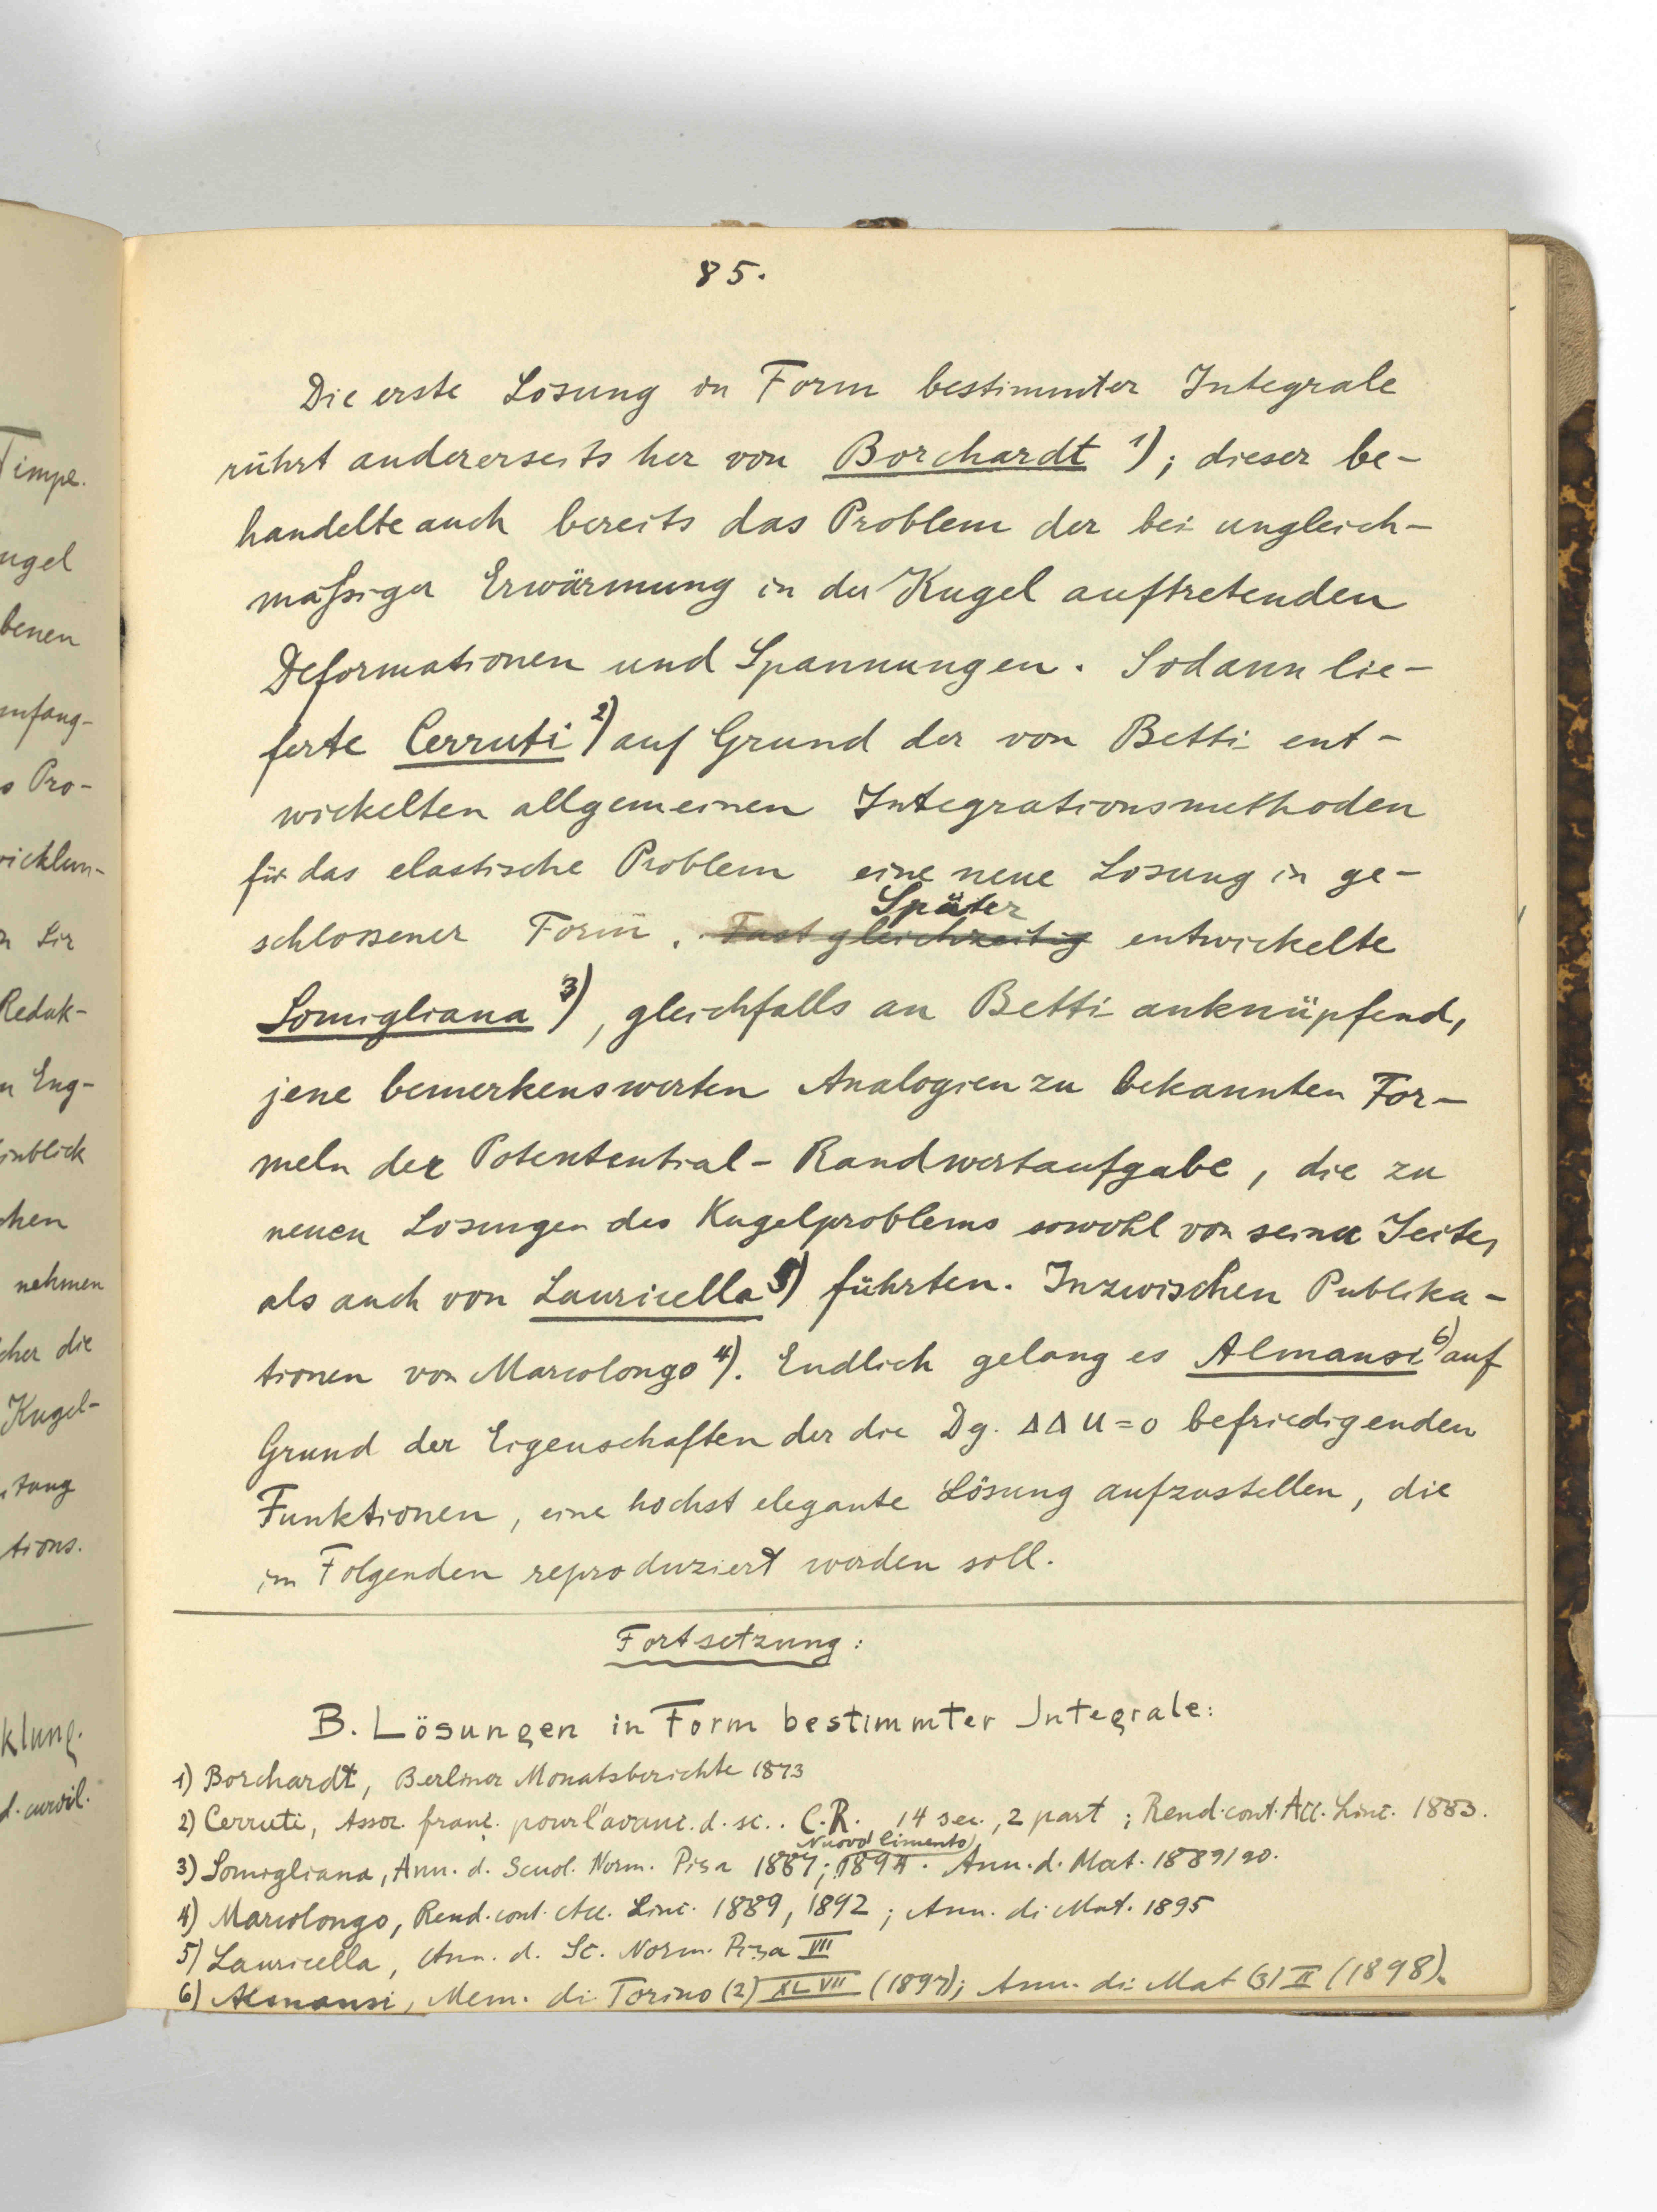 85.
Die erste Lösung in Form bestimmter Integrale
rührt andererseits her von Borchardt 1); dieser be-
handelte auch bereits das Problem der bei ungleich-
mässiger Erwärmung in der Kugel auftretenden
Deformationen und Spannungen. Sodann lie-
ferte Cerruti 2) auf Grund der von Betti ent-
wickelten allgemeinen Integrationsmethoden
für das elastische Problem eine neue Lösung in ge-
Später
schlossener Form. Fast gleichzeitig entwickelte
Somigliana 3), gleichfalls an Betti anknüpfend,
jene bemerkenswerten Analogien zu bekannten For-
meln der Potentential-Randwertaufgabe, die zu
neuen Lösungen des Kugelproblems sowohl von seiner Seite,
als auch von Lauricella 5) führten. Inzwischen Publika-
tionen von Marcolongo 4). Endlich gelang es Almansi 6) auf
Grund der Eigenschaften der die Dg. ΔΔu=0 befriedigenden
Funktionen, eine höchst elegante Lösung aufzustellen, die
im Folgenden reproduziert werden soll.
Fortsetzung:
B. Lösungen in Form bestimmter Integrale:
1) Borchardt, Berliner Monatsberichte 1873
2) Cerruti, Assoc. franç. pour l'avanc. d. sc.. C.R. 14 sec., 2 part; Rend. cont. Acc. Linc. 1883.
Nuovo Cimento
3) Somigliana, Ann. d. Scuol. Norm. Pisa 1887; 1894. Ann. d. Mat. 1889/90.
4) Marcolongo, Rend. cont. Acc. Linc. 1889, 1892; Ann. di Mat. 1895
5) Lauricella, Ann. d. Sc. Norm. Pisa VII
6) Almansi, Mem. di Torino (2) XLVII (1897); Ann. di Mat (3) II (1898).
Timpe.
ugel
benen
mfang-
s Pro-
icklun-
n Sir
Redak-
n Eng-
inblick
chen
nehmen
cher die
Kugel-
tung
tions.
klung.
d. curvil.